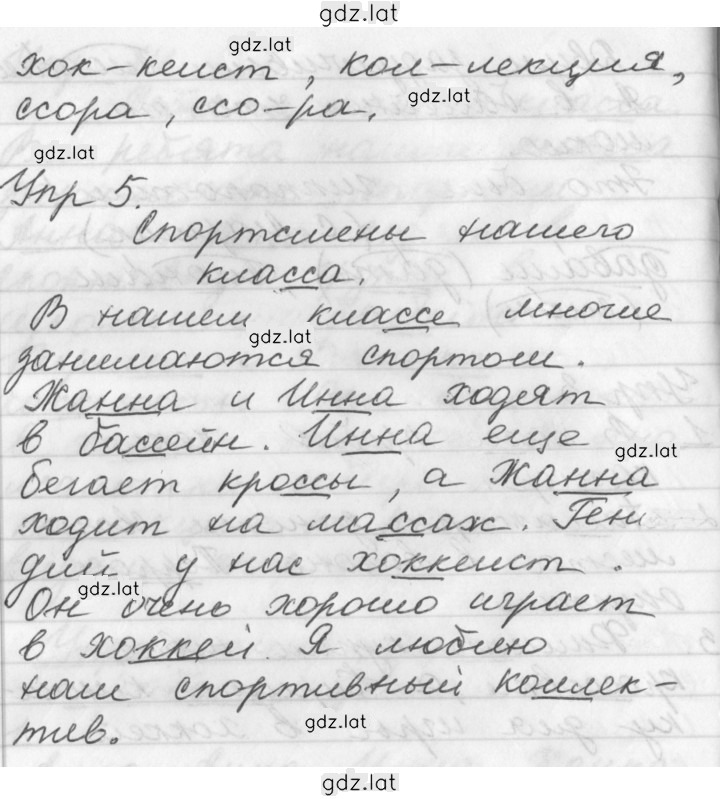 gdz.lat
хок-кеист, кол-лекция,
gdz.lat
ссора, ссо-ра.
gdz.lat
gdz.lat
Упр 5.
Спортсмены нашего
класса.
В нашем классе многие
gdz.lat
занимаются спортом.
Жанна и Инна ходят
в бассейн. Инна еще
gdz.lat
бегает кроссы, а Жанна
ходит на массаж. Ген
дий у нас хоккеист.
gdz.lat
Он очень хорошо играет
в хоккей. Я люблю
наш спортивный коллек-
тив.
gdz.lat
gdz.lat